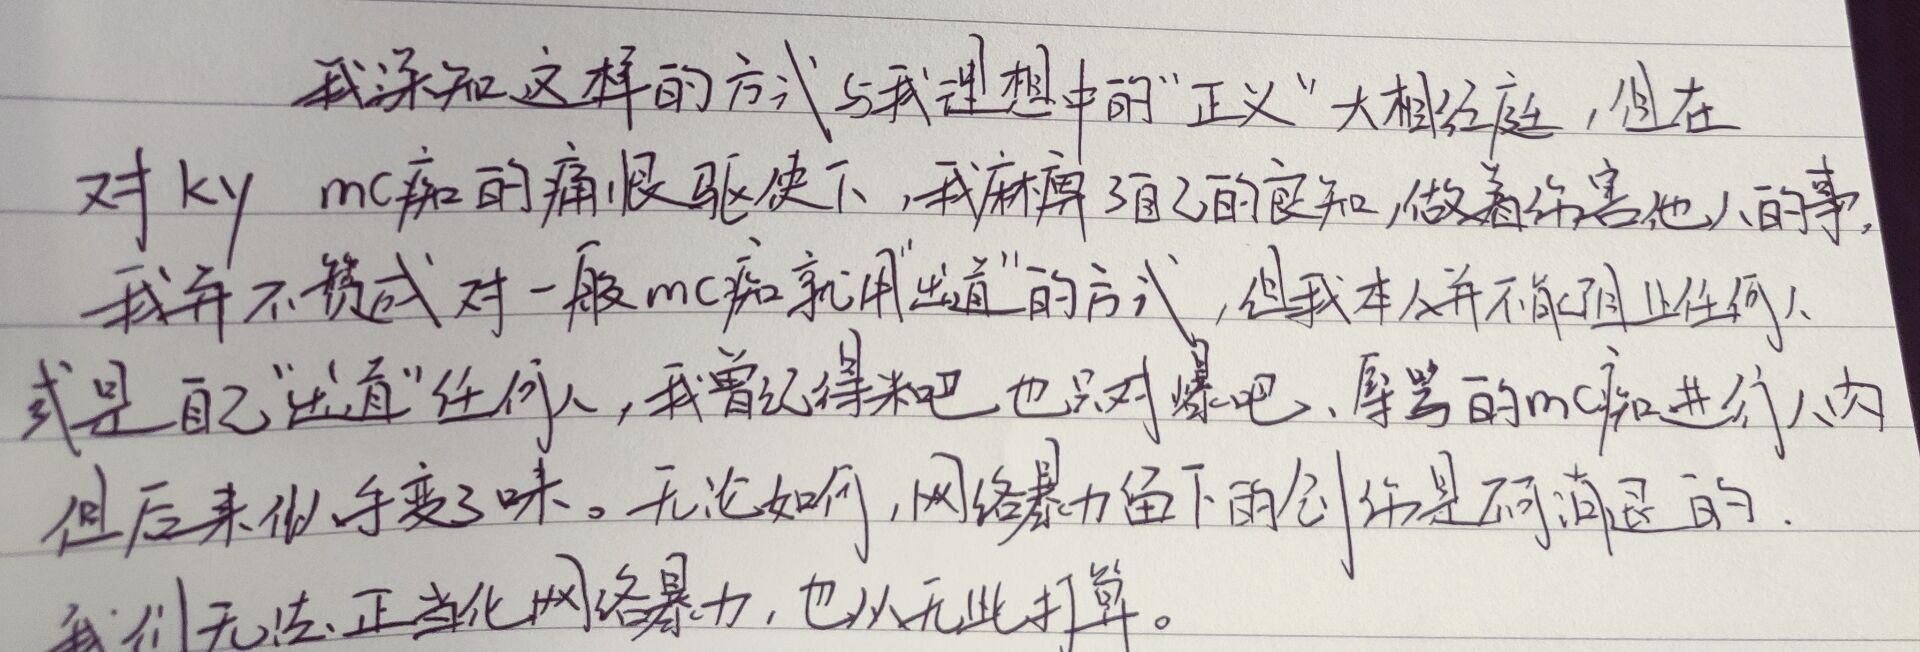 我深知这样的方式与我理想中的“正义”大相径庭，但在
对ky mc痴的痛恨驱使下，我麻痹了自己的良知，做着伤害他人的事，
我并不赞成对一般mc痴就用“出道”的方式，但我本人并不能阻止任何人
或是自己“出道”任何人，我曾记得米吧也只对爆吧、辱骂的mc痴进行人肉
但后来似乎变了味。无论如何，网络暴力留下的创伤是不可消退的.
我们无法正当化网络暴力，也从无此打算。